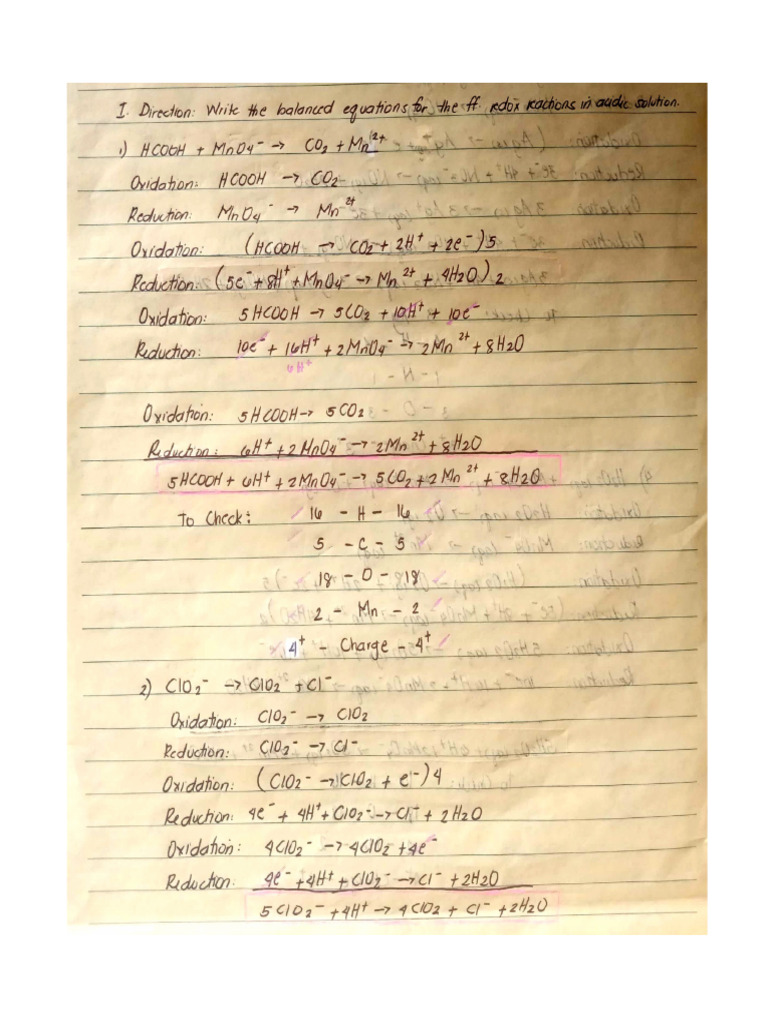 I. Direction: Write the balanced equations for the ff. redox reactions in acidic solution.
1) HCOOH + MnO4⁻ → CO2 + Mn²⁺
Oxidation: HCOOH → CO2
Reduction: MnO4⁻ → Mn²⁺
Oxidation: (HCOOH → CO2 + 2H⁺ + 2e⁻)5
Reduction: (5e⁻ + 8H⁺ + MnO4⁻ → Mn²⁺ + 4H2O)2
Oxidation: 5HCOOH → 5CO2 + 10H⁺ + 10e⁻
Reduction: 10e⁻ + 16H⁺ + 2MnO4⁻ → 2Mn²⁺ + 8H2O
6H⁺
Oxidation: 5HCOOH → 5CO2
Reduction: 6H⁺ + 2MnO4⁻ → 2Mn²⁺ + 8H2O
5HCOOH + 6H⁺ + 2MnO4⁻ → 5CO2 + 2Mn²⁺ + 8H2O
To Check: 16 - H - 16
5 - C - 5
18 - O - 18
2 - Mn - 2
4⁺ - Charge - 4⁺
2) ClO2⁻ → ClO2 + Cl⁻
Oxidation: ClO2⁻ → ClO2
Reduction: ClO2⁻ → Cl⁻
Oxidation: (ClO2⁻ → ClO2 + e⁻)4
Reduction: 4e⁻ + 4H⁺ + ClO2⁻ → Cl⁻ + 2H2O
Oxidation: 4ClO2⁻ → 4ClO2 + 4e⁻
Reduction: 4e⁻ + 4H⁺ + ClO2⁻ → Cl⁻ + 2H2O
5ClO2⁻ + 4H⁺ → 4ClO2 + Cl⁻ + 2H2O